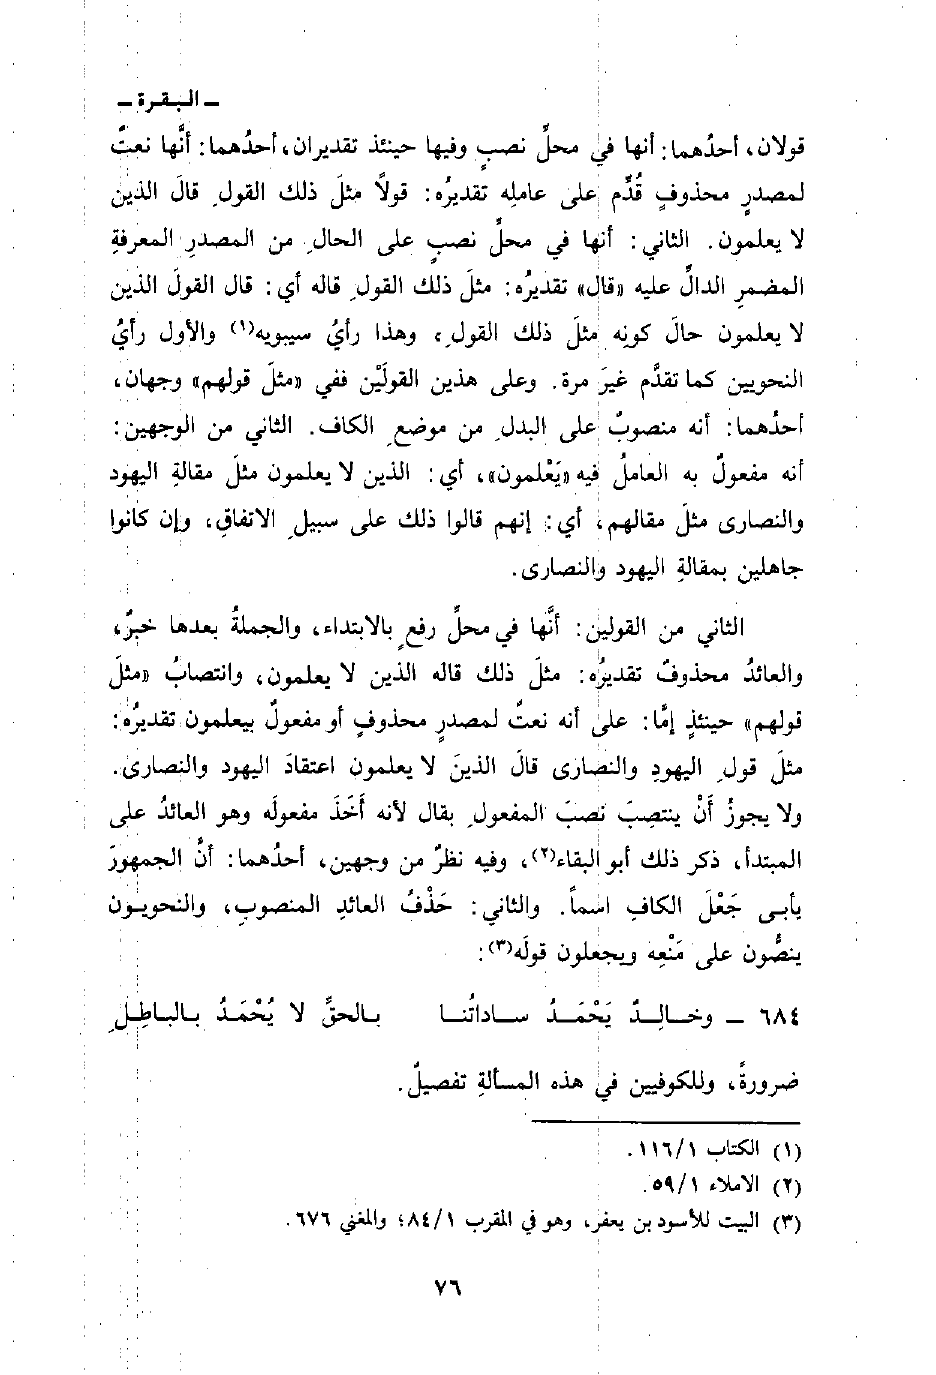 ـ البـقـرة ـ
قولان، أحدُهما: أنها في محلِّ نصبٍ وفيها حينئذ تقديران، أحدُهما: أنَّها نعتٌ
لمصدرٍ محذوفٍ قُدِّم على عامِله تقديرُه: قولاً مثلَ ذلك القولِ قالَ الذين
لا يعلمون. الثاني: أنها في محلِّ نصبٍ على الحالِ من المصدرِ المعرفةِ
المضمرِ الدالِّ عليه «قال» تقديرُه: مثلَ ذلك القولِ قاله أي: قال القولَ الذين
لا يعلمون حالَ كونِه مثلَ ذلك القولِ، وهذا رأيُ سيبويه(١) والأول رأيُ
النحويين كما تقدَّم غيرَ مرة. وعلى هذين القولَيْن ففي «مثلَ قولهم» وجهان،
أحدُهما: أنه منصوبٌ على البدلِ من موضعِ الكاف. الثاني من الوجهين:
أنه مفعولٌ به العاملُ فيه «يَعْلمون»، أي: الذين لا يعلمون مثلَ مقالةِ اليهود
والنصارى مثلَ مقالهم، أي: إنهم قالوا ذلك على سبيلِ الاتفاقِ، وإن كانوا
جاهلين بمقالةِ اليهود والنصارى.
الثاني من القولين: أنَّها في محلِّ رفعٍ بالابتداء، والجملةُ بعدها خبرٌ،
والعائدُ محذوفٌ تقديرُه: مثلَ ذلك قاله الذين لا يعلمون، وانتصابُ «مثلَ
قولهم» حينئذٍ إمَّا: على أنه نعتٌ لمصدرٍ محذوفٍ أو مفعولٌ بيعلمون تقديرُه:
مثلَ قولِ اليهودِ والنصارى قالَ الذينَ لا يعلمون اعتقادَ اليهود والنصارى.
ولا يجوزُ أَنْ ينتصِبَ نصبَ المفعولِ بقال لأنه أَخَذَ مفعولَه وهو العائدُ على
المبتدأ، ذكر ذلك أبو البقاء(٢)، وفيه نظرٌ من وجهين، أحدُهما: أنَّ الجمهورَ
يأبى جَعْلَ الكافِ اسماً. والثاني: حَذْفُ العائدِ المنصوبِ، والنحويـون
ينصُّون على مَنْعِه ويجعلون قولَه(٣):
٦٨٤ ـ وخـالـدٌ يَحْمَـدُ سـاداتُنـا بـالحقِّ لا يُحْمَـدُ بـالبـاطِـلِ
ضرورةً، وللكوفيين في هذه المسألةِ تفصيلٌ.
(١) الكتاب ١١٦/١.
(٢) الاملاء ٥٩/١.
(٣) البيت للأسود بن يعفر، وهو في المقرب ٨٤/١؛ والمغني ٦٧٦.
٧٦